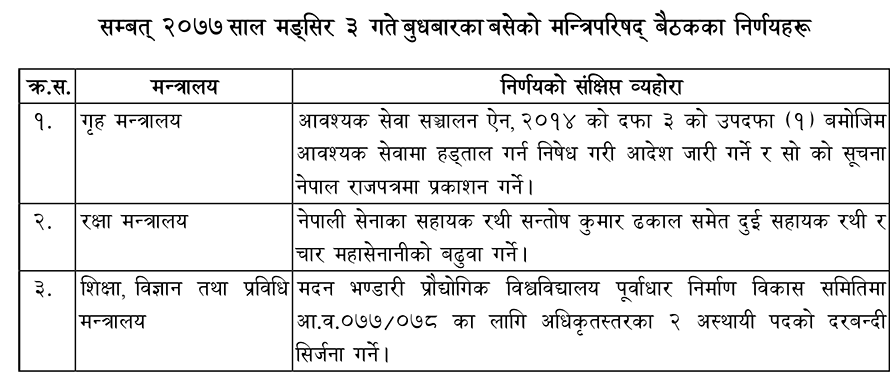 सम्बत् २०७७ साल मङ्सिर ३ गते बुधबारका बसेको मन्त्रिपरिषद् बैठकका निर्णयहरू
क्र.स. मन्त्रालय निर्णयको संक्षिप्त व्यहोरा
१. गृह मन्त्रालय आवश्यक सेवा सञ्चालन ऐन, २०१४ को दफा ३ को उपदफा (१) बमोजिम
आवश्यक सेवामा हड्ताल गर्न निषेध गरी आदेश जारी गर्ने र सो को सूचना
नेपाल राजपत्रमा प्रकाशन गर्ने।
२. रक्षा मन्त्रालय नेपाली सेनाका सहायक रथी सन्तोष कुमार ढकाल समेत दुई सहायक रथी र
चार महासेनानीको बढुवा गर्ने।
३. शिक्षा, विज्ञान तथा प्रविधि मदन भण्डारी प्रौद्योगिक विश्वविद्यालय पूर्वाधार निर्माण विकास समितिमा
मन्त्रालय आ.व.०७७/०७८ का लागि अधिकृतस्तरका २ अस्थायी पदको दरबन्दी
सिर्जना गर्ने।